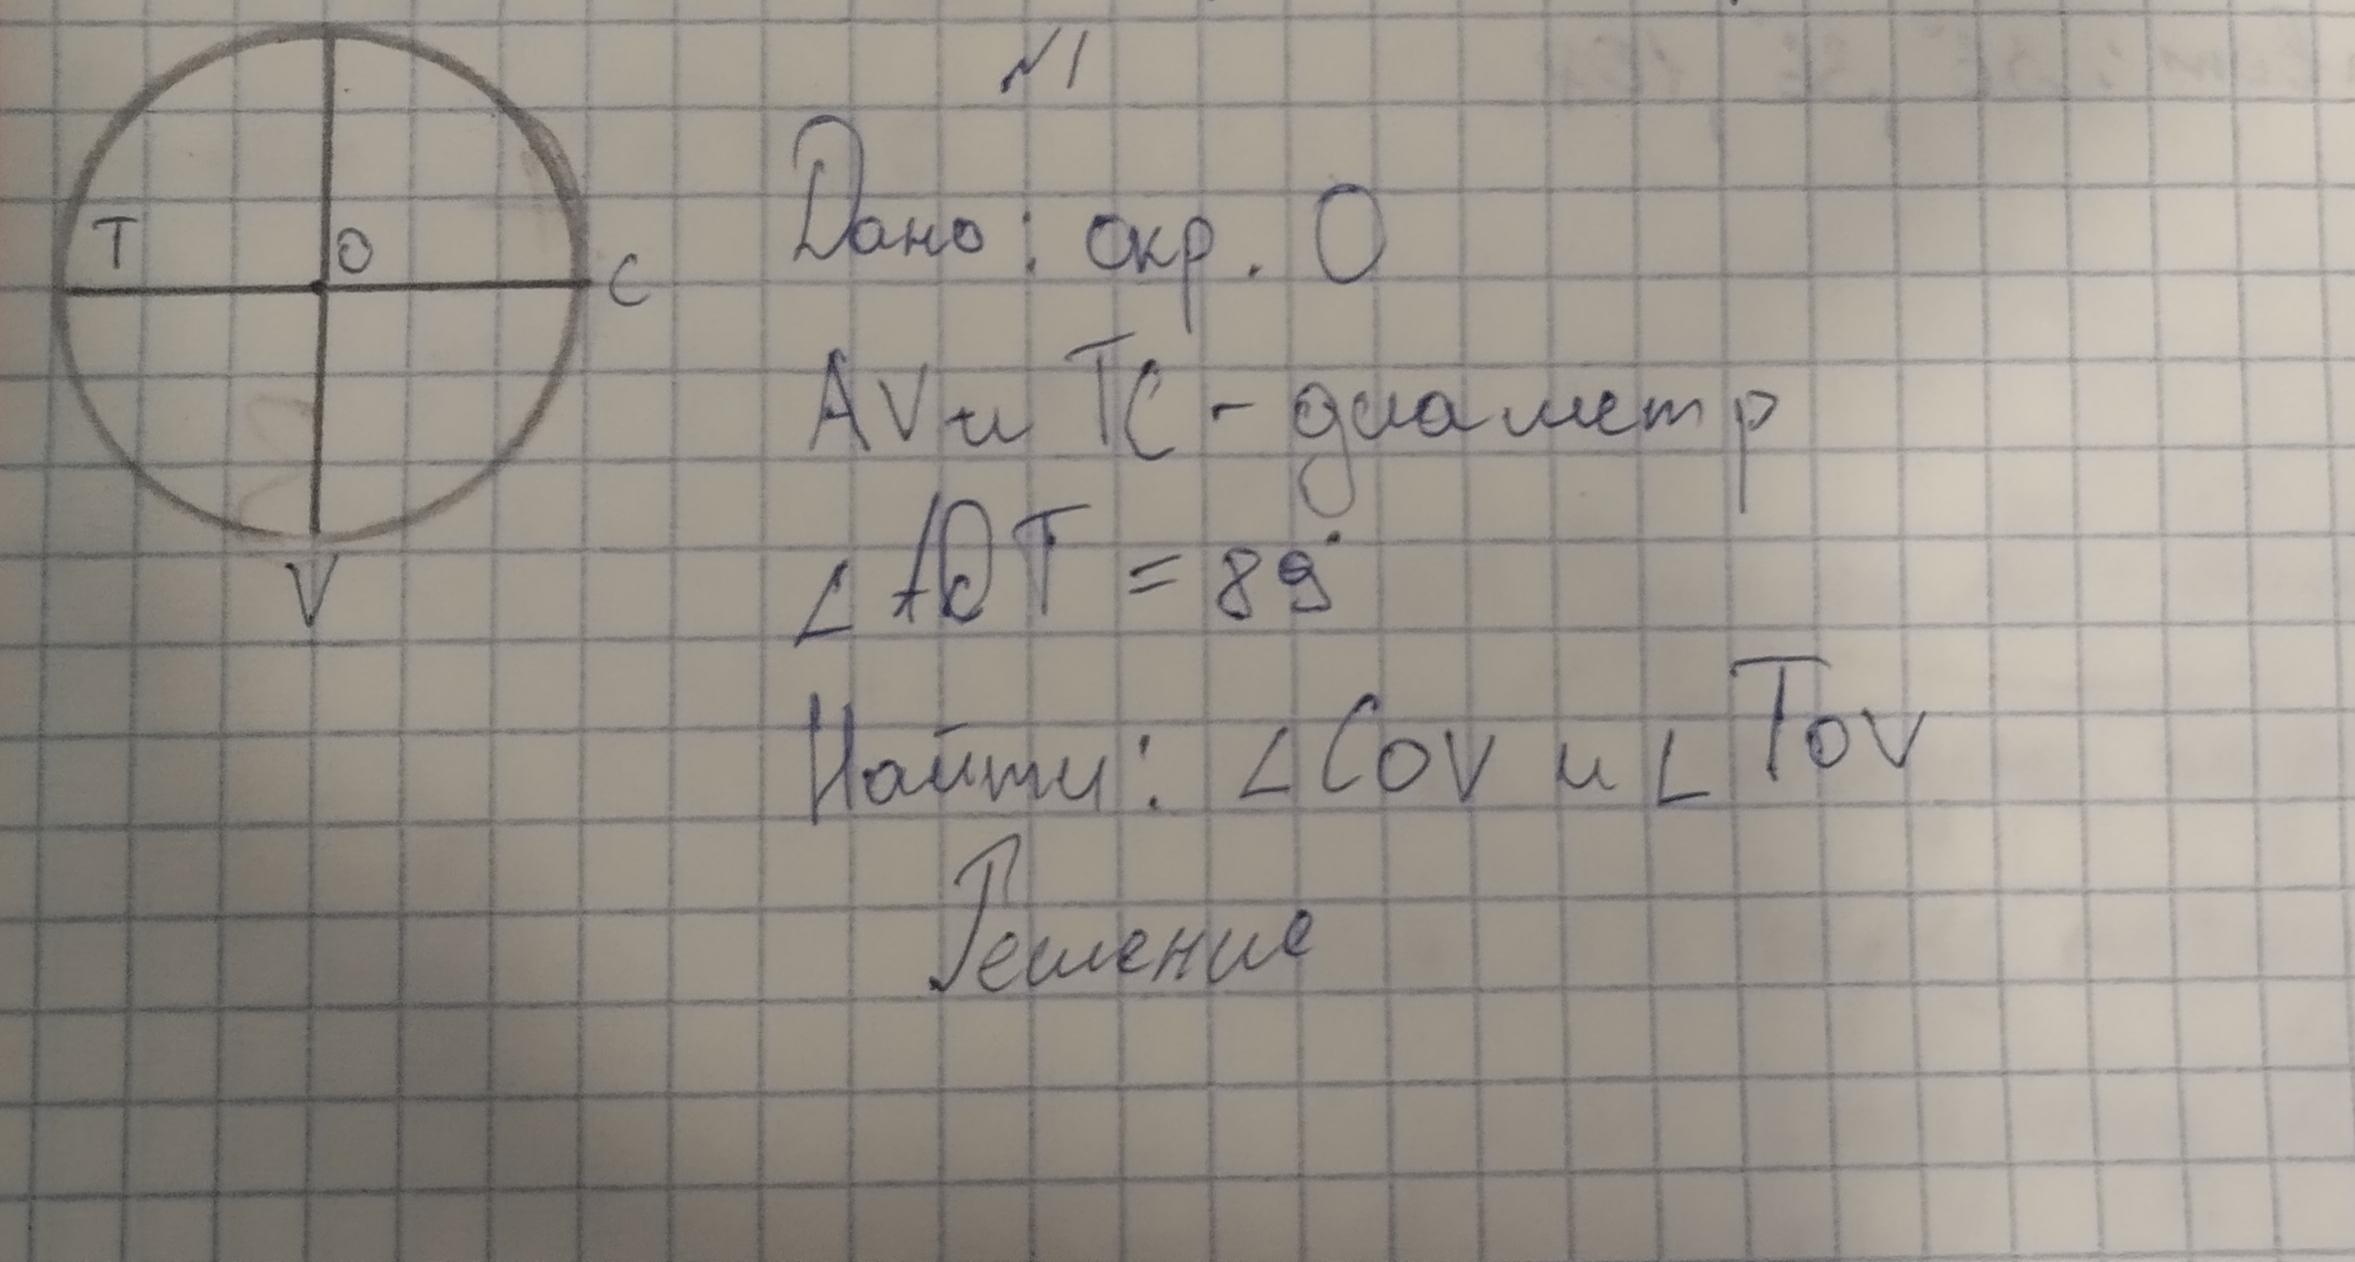 №1
T
O
C
V
Дано: окр. О
AV и TC - диаметр
∠AOT = 89°
Найти: ∠COV и ∠TOV
Решение